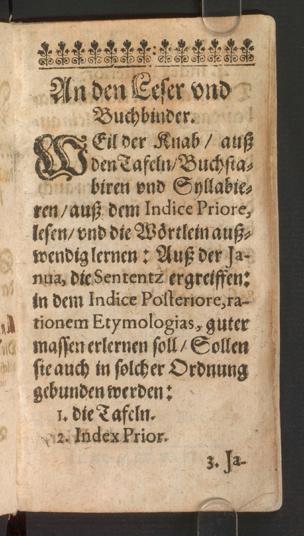 An den Leser vnd
Buchbinder.
WEil der Knab / auß
den Tafeln / Buchsta-
biren vnd Syllabie-
ren / auß dem Indice Priore,
lesen / vnd die Wörtlein auß-
wendig lernen : Auß der Ja-
nua, die Sententz ergreiffen:
in dem Indice Posteriore, ra-
tionem Etymologias, guter
massen erlernen soll / Sollen
sie auch in solcher Ordnung
gebunden werden:
1. die Tafeln.
2. Index Prior.
3. Ja-